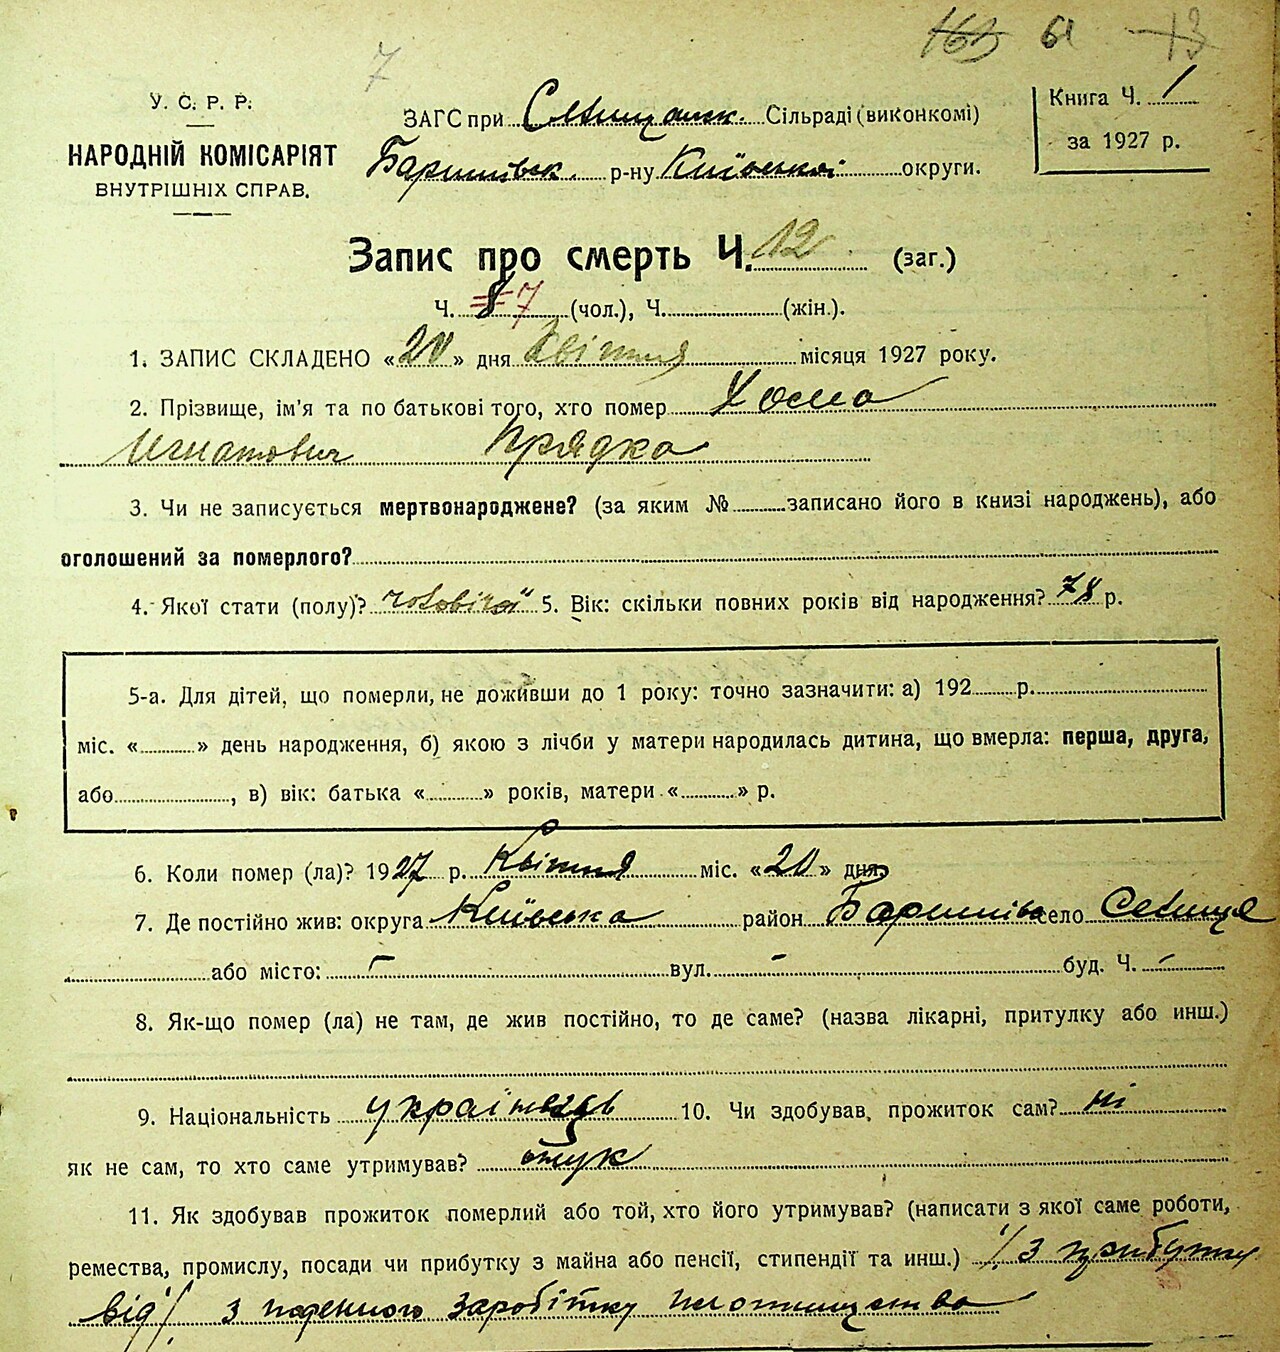 7 163 61 13
У. С. Р. Р.
НАРОДНІЙ КОМІСАРІЯТ
ВНУТРІШНІХ СПРАВ.
ЗАГС при Селищанск. Сільраді (виконкомі)
Баришівск. р-ну Київської округи.
Книга Ч. 1
за 1927 р.
Запис про смерть Ч. 12 (заг.)
Ч. 8 7 (чол.), Ч. (жін.).
1. ЗАПИС СКЛАДЕНО «20» дня Квітня місяця 1927 року.
2. Прізвище, ім'я та по батькові того, хто помер Хома
Игнатович Прядка
3. Чи не записується мертвонароджене? (за яким № записано його в книзі народжень), або
оголошений за померлого?
4. Якої стати (полу)? чоловічої 5. Вік: скільки повних років від народження? 78 р.
5-а. Для дітей, що померли, не доживши до 1 року: точно зазначити: а) 192 р.
міс. « » день народження, б) якою з лічби у матери народилась дитина, що вмерла: перша, друга,
або , в) вік: батька « » років, матери « » р.
6. Коли помер (ла)? 1927 р. Квітня міс. «20» дня
7. Де постійно жив: округа Київська район Баришівс село Селище
або місто: - вул. - буд. Ч. -
8. Як-що помер (ла) не там, де жив постійно, то де саме? (назва лікарні, притулку або инш.)
9. Національність українець 10. Чи здобував прожиток сам? ні
як не сам, то хто саме утримував? онук
11. Як здобував прожиток померлий або той, хто його утримував? (написати з якої саме роботи,
ремества, промислу, посади чи прибутку з майна або пенсії, стипендії та инш.) / з прибутку
від / з поденного заробітку плотництва